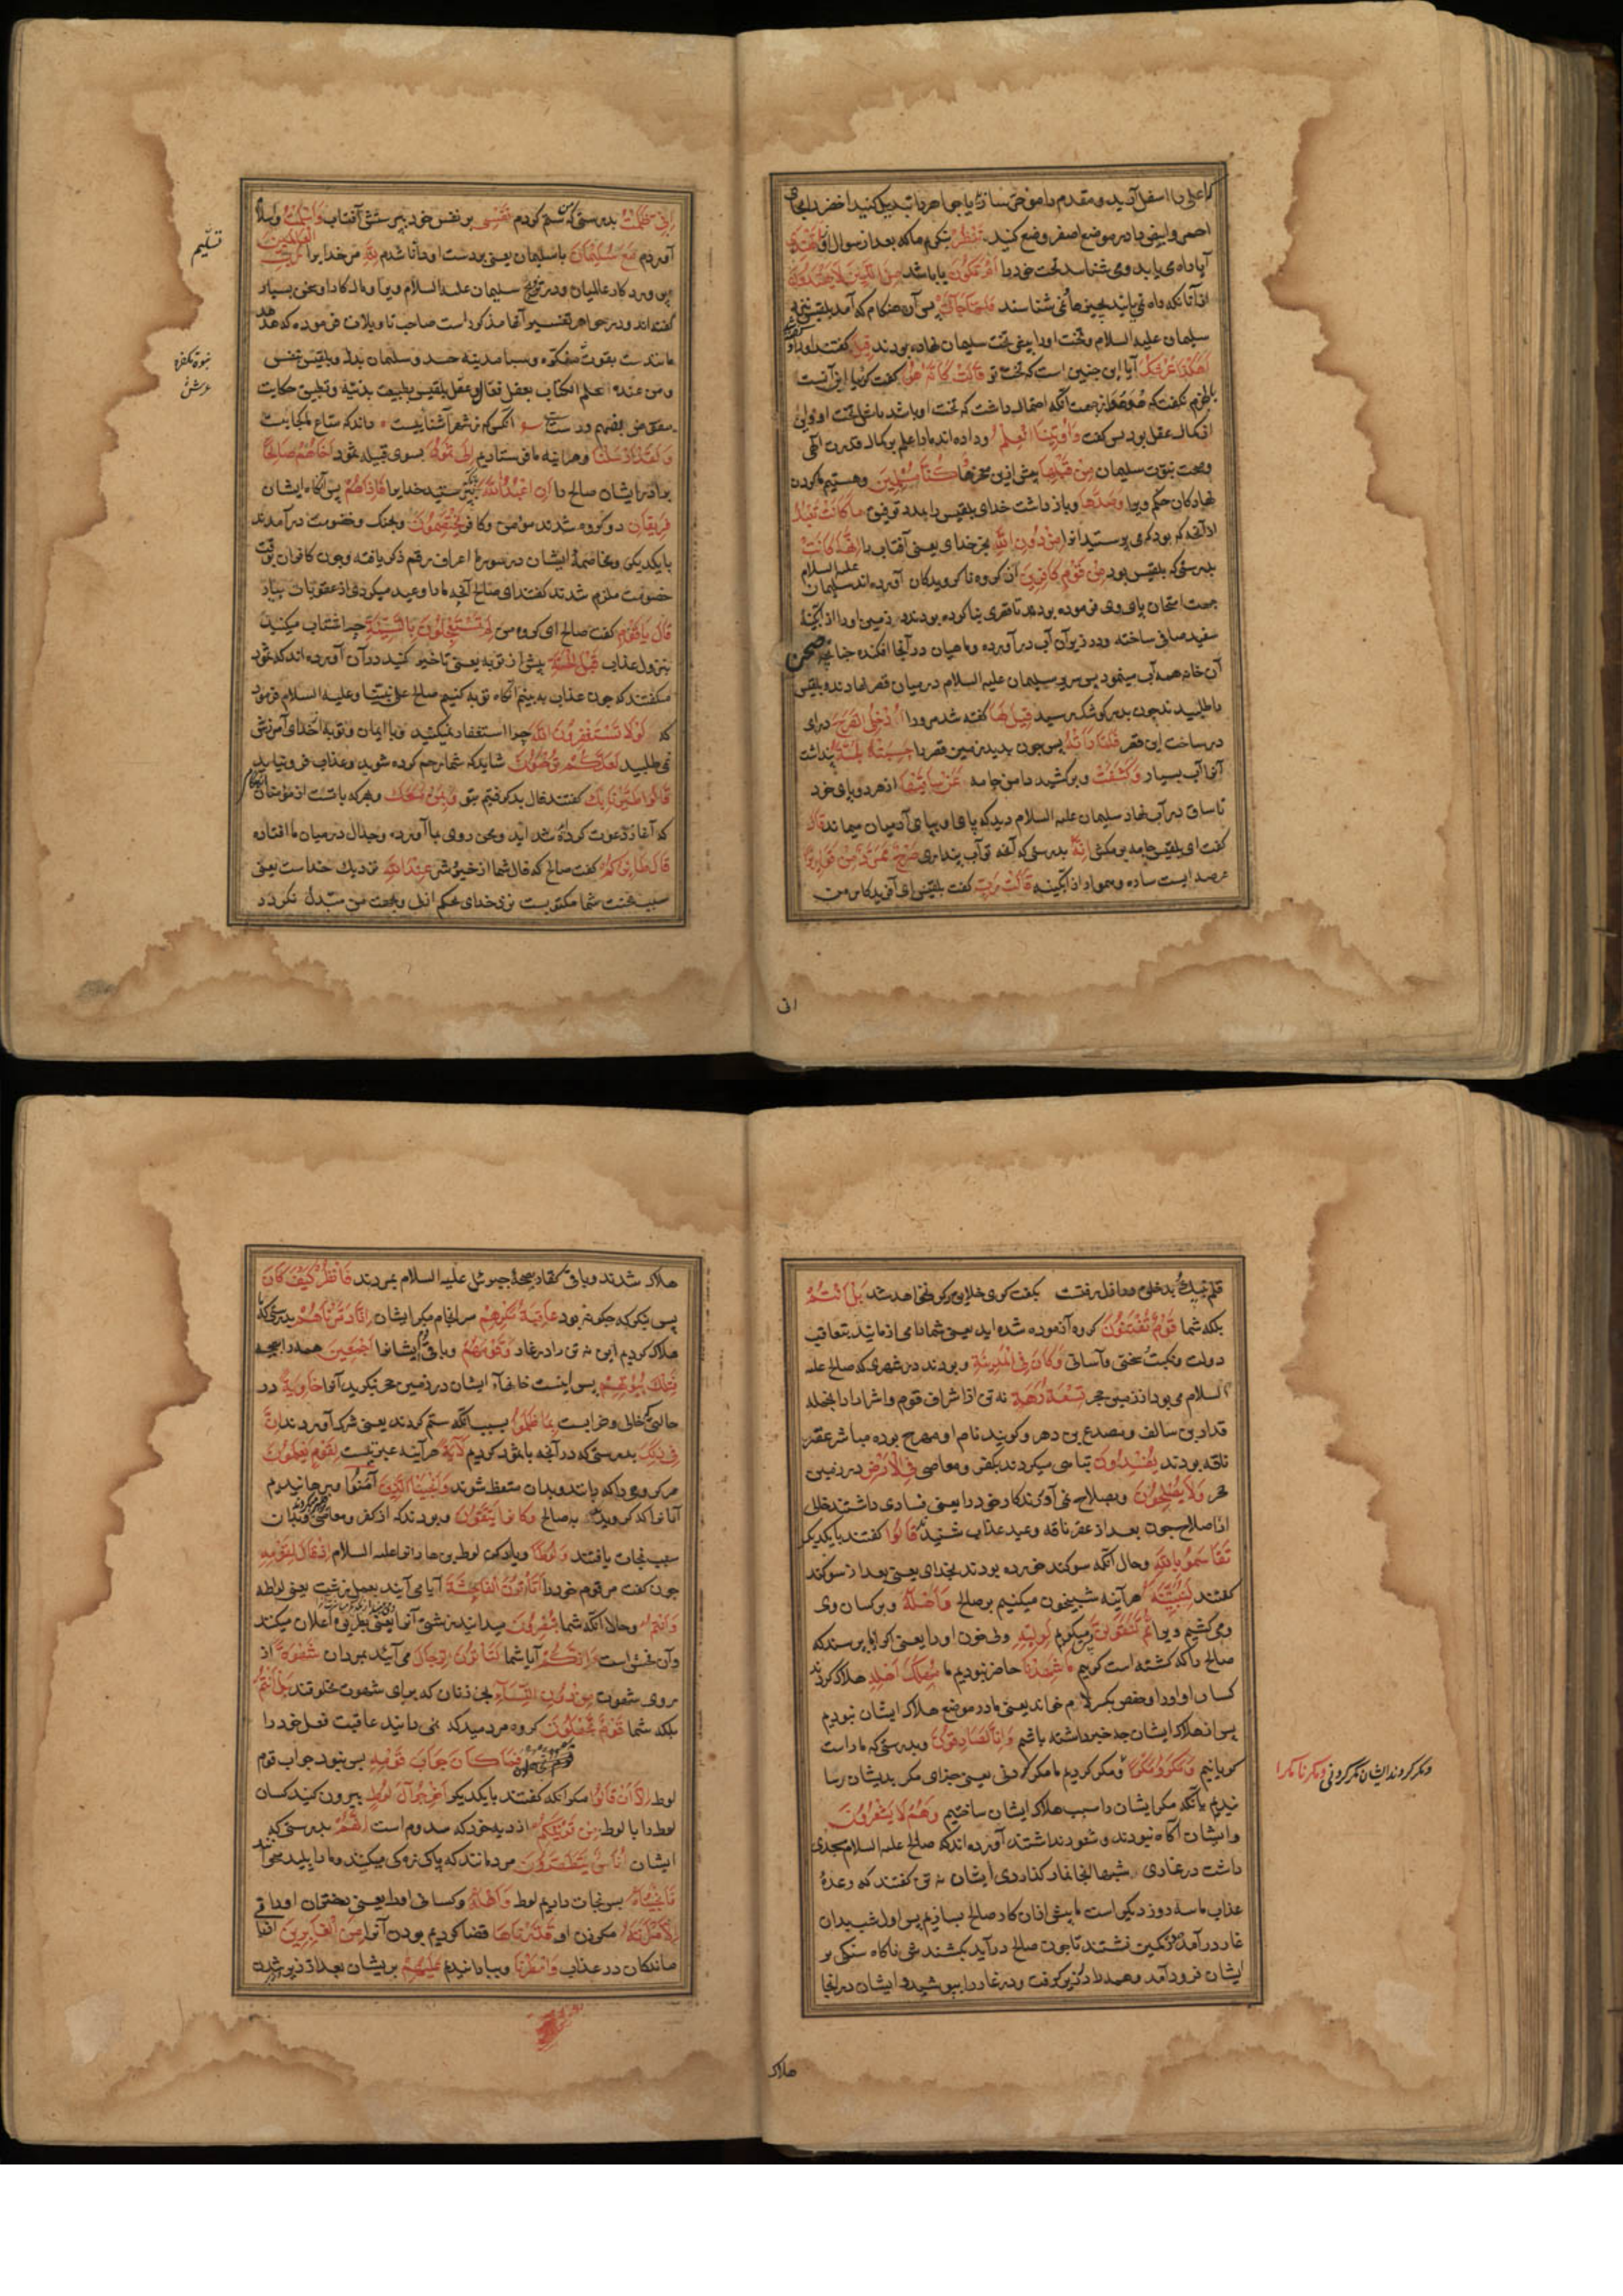 که اعلی را اسفل آرید و مقدم را موخر سازید یا جواهر را تبدیل کنید اخضر را بجای
احمر و ابیض را در موضع اصفر وضع کنید نَنْظُرْ بنگریم ما که بعد از سوال او اَتَهْتَدِی
آیا راه می یابد و می شناسد تخت خود را اَمْ تَکُونُ یا باشد مِنَ الَّذِینَ لَا یَهْتَدُونَ
از آنانکه راه نمی یابند بچیزها و نمی شناسند فَلَمَّا جَاءَتْ پس آن هنکام که آمد بلقیس نزد
سلیمان علیه السلام و تخت او را پیش تخت سلیمان نهاده بودند قِیلَ کفتند او را
اَهٰکَذَا عَرْشُکِ آیا این چنین است که تخت تو قَالَتْ کَاَنَّهُ هُوَ کفت کویا این آنست
نکفت که هو هو از جهت آنکه احتمال داشت که تخت او باشد یا مثل تخت او و این
از کمال عقل بود پس کفت وَاُوتِینَا الْعِلْمَ و داده اند ما را علم بر کمال قدرت الهی
و صحت نبوت سلیمان مِنْ قَبْلِهَا پیش ازین معجزها وَکُنَّا مُسْلِمِینَ و هستیم ما کردن
نهادکان حکم ویرا وَصَدَّهَا و باز داشت خدای بلقیس را بمدد توفیق مَا کَانَتْ تَعْبُدُ
از آنچه که بود که می پرستید آنرا مِنْ دُونِ اللّٰهِ بجز خدای یعنی آفتاب را اِنَّهَا کَانَتْ
بدرستی که بلقیس بود مِنْ قَوْمٍ کَافِرِینَ از کروه ناکرویدکان آورده اند سلیمان علیه السلام
جهت امتحان پای وی فرموده بود تا قصری بنا کرده بودند و زمین او را از آبکینهٔ
سفید صافی ساخته و در زیر آن آب در آورده و ماهیان در آنجا افکنده چنانچه صحن
آن خانه همه آب مینمود پس سریر سلیمان علیه السلام در میان قصر نهادند و بلقیس
را طلبیدند چون بدر کوشک رسید قِیلَ لَهَا کفته شد مر او را ادْخُلِی الصَّرْحَ درای
در ساحت این قصر فَلَمَّا رَاَتْهُ پس چون بدید زمین قصر را حَسِبَتْهُ لُجَّةً پنداشت
آنرا آب بسیار وَکَشَفَتْ و برکشید دامن جامه عَنْ سَاقَیْهَا از هر دو پای خود
تا ساق در آب نهاد سلیمان علیه السلام دید که پای او بپای آدمیان میماند قَالَ
کفت ای بلقیس جامه بر مکش اِنَّهُ بدرستی که آنچه تو آب پنداری صَرْحٌ مُمَرَّدٌ مِنْ قَوَارِیرَ
عرصه ایست ساده و هموار از آبکینه قَالَتْ رَبِّ کفت بلقیس ای آفریدکار من
انی
اِنِّی ظَلَمْتُ بدرستی که من ستم کردم نَفْسِی بر نفس خود بپرستش آفتاب وَاَسْلَمْتُ و اسلام
آوردم مَعَ سُلَیْمَانَ با سلیمان یعنی بر دست او دانا شدم لِلّٰهِ مر خدایرا رَبِّ الْعَالَمِینَ
پرورد کار عالمیان و در تزویج سلیمان علیه السلام ویرا و مال کار او سخن بسیار
کفته اند و در جواهر تفسیر آنها مذکور است صاحب تاویلات فرموده که هدهد
مانند ست بقوت متفکره و سبا مدینه جسد و سلیمان بدل و بلقیس بنفس
ومن عنده اعلم الکتاب بعقل فعال و عقل بلقیس بطبیعت بدنیه و تطبیق حکایت
آنکس که ز شهر آشناییست داند که متاع ما کجایست
وَلَقَدْ اَرْسَلْنَا و هر آینه ما فرستادیم اِلٰی ثَمُودَ بسوی قبیله ثمود اَخَاهُمْ صَالِحًا
برادر ایشان صالح را اَنِ اعْبُدُوا اللّٰهَ بپرستید خدایرا فَاِذَا هُمْ پس آنکاه ایشان
فَرِیقَانِ دو کروه شدند مومن و کافر یَخْتَصِمُونَ و بجنک و خصومت در آمدند
با یکدیکر و مخاصمهٔ ایشان در سوره اعراف رقم ذکر یافته و چون کافران بوقت
خصومت ملزم شدند کفتند ای صالح آنچه ما را وعید میکردی از عقوبات بیار
قَالَ یَا قَوْمِ کفت صالح ای کروه من لِمَ تَسْتَعْجِلُونَ بِالسَّیِّئَةِ چرا شتاب میکنید
بنزول عذاب قَبْلَ الْحَسَنَةِ پیش از توبه یعنی تاخیر کنید در آن آورده اند که ثمود
میکفتند که چون عذاب به بینیم آنکاه توبه کنیم صالح علی نبینا وعلیه السلام فرمود
که لَوْلَا تَسْتَغْفِرُونَ اللّٰهَ چرا استغفار نمیکنید و با ایمان و توبه از خدای آمرزش
نمی طلبید لَعَلَّکُمْ تُرْحَمُونَ شاید که شما رحم کرده شوید و عذاب فرو نیاید
قَالُوا اطَّیَّرْنَا بِکَ کفتند فال بد کرفتیم بتو وَبِمَنْ مَعَکَ و بهر که با تست از مؤمنان
که آغاز دعوت کرده شد اید و محن روی بما آورده و جدال در میان ما افتاده
قَالَ طَائِرُکُمْ کفت صالح که فال شما از خیر و شر عِنْدَ اللّٰهِ نزدیک خداست یعنی
سبب محنت شما مکتوبست نزد خدای بحکم ازل و بجهت من متبدل نکردد
تسلیم
بنوة متفکره
عرشش
قلم به نیک و بد خلق در ازل رفتست بکفت کوی خلایق دکر نخواهد شد بَلْ اَنْتُمْ
بلکه شما قَوْمٌ تُفْتَنُونَ کروه آزموده شده اید یعنی شما را می آزمایند بتعاقب
دولت و نکبت سختی و آسانی وَکَانَ فِی الْمَدِینَةِ و بودند در شهری که صالح علیه
السلام می بود از زمین حجر تِسْعَةُ رَهْطٍ نه تن از اشراف قوم و اشرار از انجمله
قدار بن سالف و مصدع بن دهر و کویند نام او مهرج بوده مباشر عقر
ناقه بودند یُفْسِدُونَ تباهی میکردند بکفر و معاصی فِی الْاَرْضِ در زمین
حجر وَلَا یُصْلِحُونَ و بصلاح نمی آوردند کار خود را یعنی فسادی داشتند خالی
از اصلاح چون بعد از عقر ناقه وعید عذاب شنیدند قَالُوا کفتند با یکدیکر
تَقَاسَمُوا بِاللّٰهِ و حال آنکه سوکند خورده بودند بخدای یعنی بعد از سوکند
کفتند لَنُبَیِّتَنَّهُ هر آینه شبیخون میکنیم بر صالح وَاَهْلَهُ و بر کسان وی
و می کشیم ویرا ثُمَّ لَنَقُولَنَّ پس میکوییم لِوَلِیِّهِ ولی خون او را یعنی کر از ما پرسند که
صالح را که کشته است کوییم مَا شَهِدْنَا حاضر نبودیم ما مَهْلِکَ اَهْلِهِ هلاک کردن
کسان او او را و حفص بکسر لام خواند یعنی ما در موضع هلاک ایشان نبودیم
پس از هلاک ایشان چه خبر داشته باشیم وَاِنَّا لَصَادِقُونَ و بدرستی که ما راست
کویانیم وَمَکَرُوا مَکْرًا و مکر کردیم ما مکر کردنی یعنی جزای مکر بدیشان رسا
نیدیم بآنکه مکر ایشان را سبب هلاک ایشان ساختیم وَهُمْ لَا یَشْعُرُونَ
و ایشان آکاه نبودند و شعور نداشتند آورده اند که صالح علیه السلام مسجدی
داشت در غاری شبها آنجا نماز کذاردی ایشان نه تن کفتند که وعدهٔ
عذاب ما سه روز دیکر است ما پیش ازان کار صالح بسازیم پس اول شب بدان
غار در آمده در کمین نشستند تا چون صالح در آید بکشندش ناکاه سنکی بر
ایشان فرود آمد و همه را در کرفت و در غار را بپوشید و ایشان در آنجا
هلاک
ومکر کردند ایشان مکر کردنی ومکرنا مکرا
هلاک شدند و باقی کفار بصیحهٔ جبرئیل علیه السلام بمردند فَانْظُرْ کَیْفَ کَانَ
پس بنکر که چکونه بود عَاقِبَةُ مَکْرِهِمْ سرانجام مکر ایشان اَنَّا دَمَّرْنَاهُمْ بدرستی که ما
هلاک کردیم این نه تن را در غار وَقَوْمَهُمْ و باقی قوم ایشانرا اَجْمَعِینَ همه را بصیحه
فَتِلْکَ بُیُوتُهُمْ پس اینست خانهاء ایشان در زمین حجر بنکرید آنرا خَاوِیَةً در
حالتی که خالی و خرابست بِمَا ظَلَمُوا بسبب آنکه ستم کردند یعنی شرک آوردند اِنَّ
فِی ذٰلِکَ بدرستی که در آنچه با ثمود کردیم لَاٰیَةً هر آینه عبرتیست لِقَوْمٍ یَعْلَمُونَ
مر کروهی را که دانند و بدان متعظ شوند وَاَنْجَیْنَا الَّذِینَ آمَنُوا و برهانیدیم
آنانرا که کرویدند به صالح وَکَانُوا یَتَّقُونَ و بودند که از کفر و معاصی
سبب نجات یافتند وَلُوطًا و یاد کن لوط بن هاران را علیه السلام اِذْ قَالَ لِقَوْمِهِ
چون کفت مر قوم خود را اَتَاْتُونَ الْفَاحِشَةَ آیا می آیید بعمل زشت یعنی لواطه
وَاَنْتُمْ و حال آنکه شما تُبْصِرُونَ میدانید زشتی آنرا یعنی اعلان میکنند
و آن فحش است اَئِنَّکُمْ آیا شما لَتَاْتُونَ الرِّجَالَ می آیید بمردان شَهْوَةً از
روی شهوت مِنْ دُونِ النِّسَاءِ بجز زنان که برای شهوت مخلوقند بَلْ اَنْتُمْ
بلکه شما قَوْمٌ تَجْهَلُونَ کروه مردمید که نمی دانید عاقبت فعل خود را
فَمَا کَانَ جَوَابَ قَوْمِهِ پس نبود جواب قوم
لوط اِلَّا اَنْ قَالُوا مکر آنکه کفتند با یکدیکر اَخْرِجُوا آلَ لُوطٍ بیرون کنید کسان
لوط را با لوط مِنْ قَرْیَتِکُمْ از دیه خود که سدوم است اِنَّهُمْ بدرستی که
ایشان اُنَاسٌ یَتَطَهَّرُونَ مردمانند که پاکیزه کی میکنند و ما را پلید میخوانند
فَاَنْجَیْنَاهُ پس نجات دادیم لوط وَاَهْلَهُ و کسان او را یعنی دختران او را
اِلَّا امْرَاَتَهُ مکر زن او قَدَّرْنَاهَا قضا کردیم بودن آنرا مِنَ الْغَابِرِینَ از باز
ماندکان در عذاب وَاَمْطَرْنَا و ببارانیدیم عَلَیْهِمْ بر ایشان بعد از زیر و زبر شدن